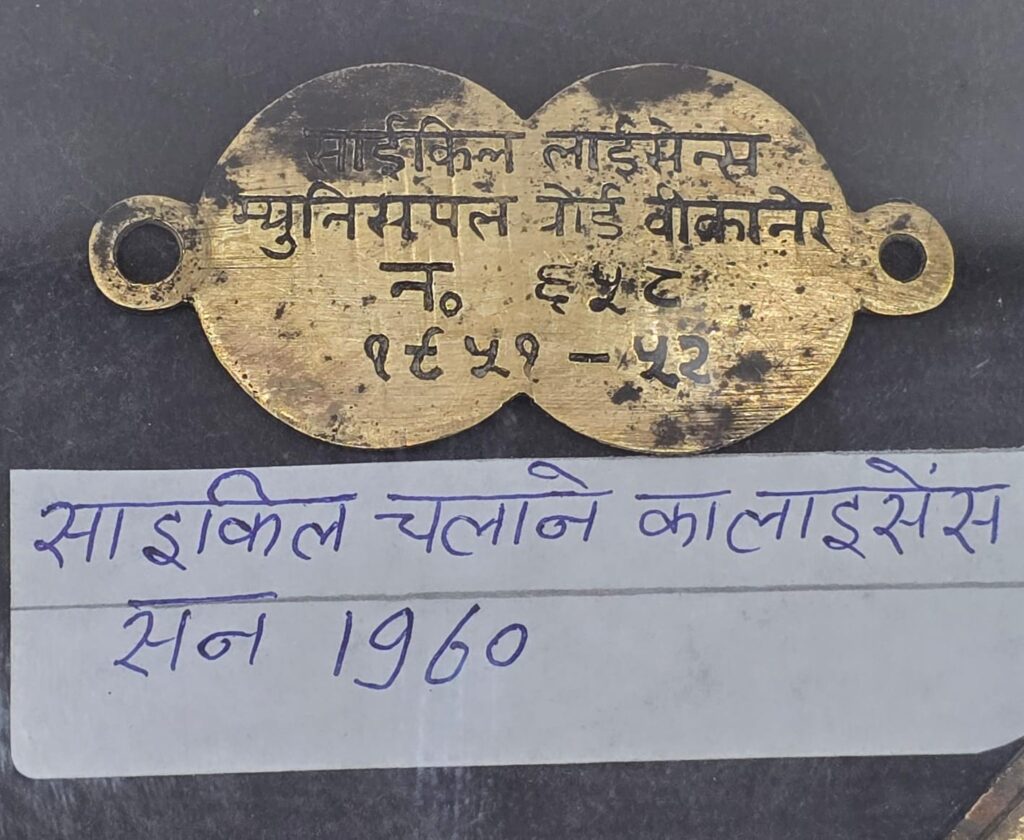 साईकिल लाईसेन्स
म्युनिसपल बोर्ड बीकानेर
न० ६५८
१९५१ - ५२
साइकिल चलाने का लाइसेंस
सन 1960